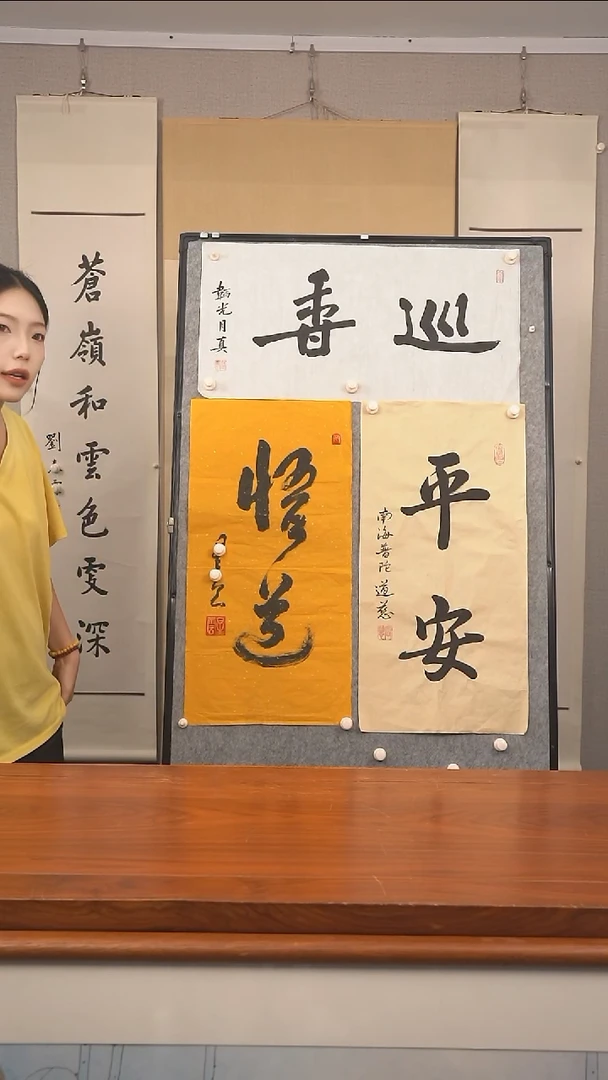 巡香
韜光月真
平安
南海普陀 道慈
悟道
蒼嶺和雲色雯深
劉